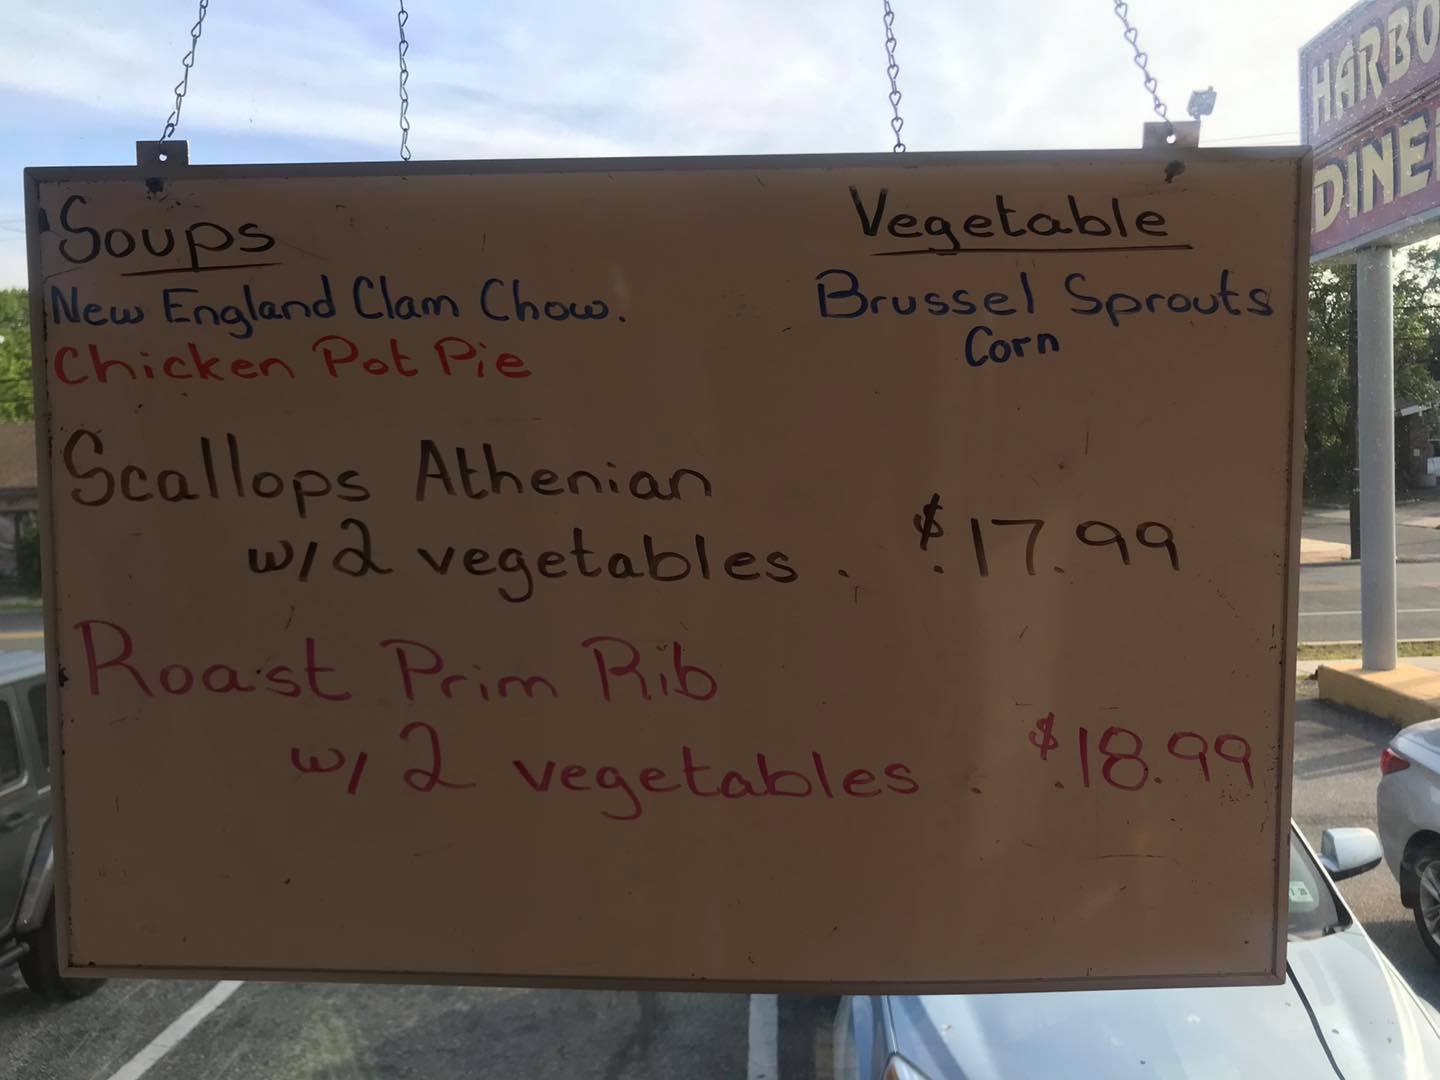 Soups
New England Clam Chow.
Chicken Pot Pie
Vegetable
Brussel Sprouts
Corn
Scallops Athenian
w/2 vegetables . $.17.99
Roast Prim Rib
w/2 vegetables . $.18.99
HARBO
DINE